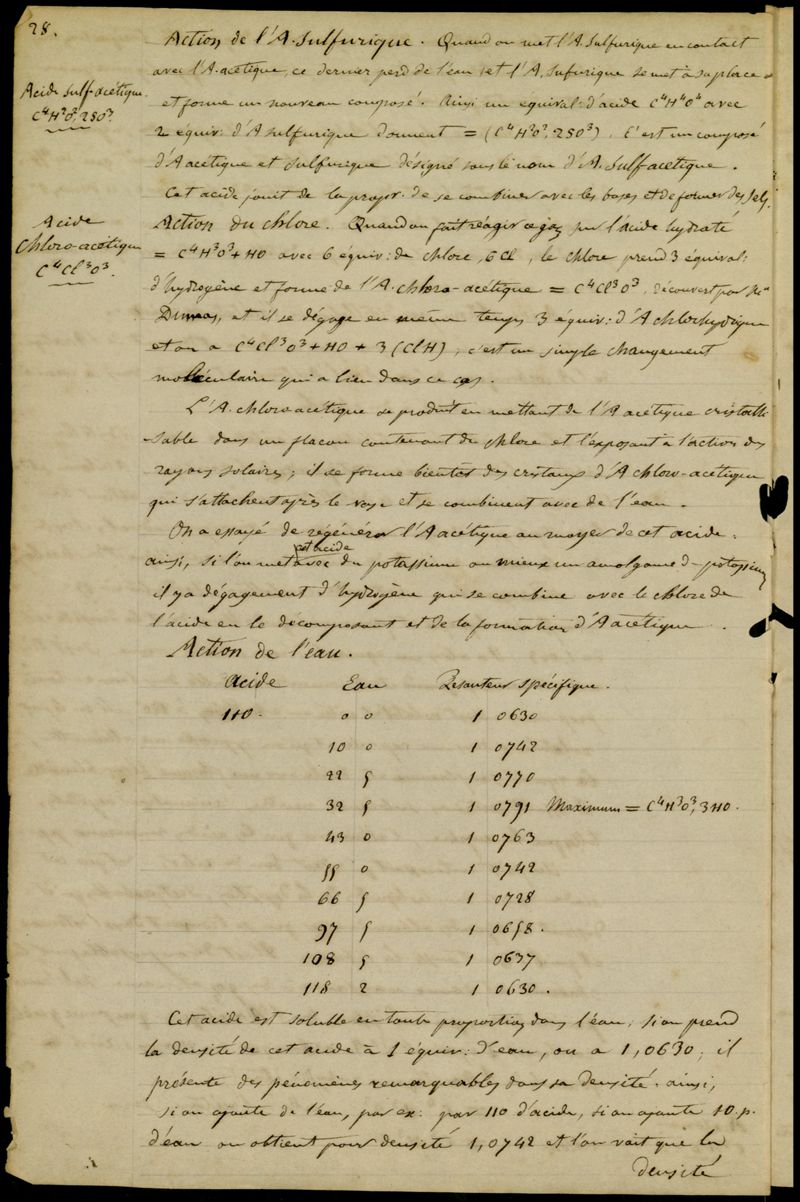 28.
Action de l'A. Sulfurique. Quand on met l'A. Sulfurique en contact
avec l'A. acétique, ce dernier perd de l'eau, et l'A. Sufurique se met à sa place
Acide sulfacétique.
C⁴H²O², 2SO³.
et forme un nouveau composé. Ainsi un équival: d'acide C⁴H⁴O⁴ avec
2 équiv: d'A sulfurique donnent = (C⁴H²O², 2SO³). C'est un composé
d'A acétique et sulfurique désigné sous le nom d'A. Sulfacétique.
Cet acide jouit de la propr. de se combiner avec les bases et de former des Sels.
Acide
Chloro-acétique
C⁴Cl³O³.
Action du chlore. Quand on fait réagir ce gaz sur l'acide hydraté
= C⁴H³O³ + HO avec 6 équiv: de chlore, 6Cl, le chlore prend 3 équival:
d'hydrogène et forme de l'A. chloro-acétique = C⁴Cl³O³, découvert par Mr
Dumas, et il se dégage en même temps 3 équiv: d'A chlorhydrique
et on a C⁴Cl³O³ + HO + 3 (ClH), c'est un simple changement
moléculaire qui a lieu dans ce cas.
L'A. chloro-acétique se produit en mettant de l'A acétique cristalli
-sable dans un flacon contenant du chlore et l'exposant à l'action des
rayons solaires; il se forme bientôt des cristaux d'A chloro-acétique
qui s'attachent après le vase et se combinent avec de l'eau.
On a essayé de régénérer l'A acétique au moyen de cet acide.
ainsi, si l'on met cet acide avec du potassium ou mieux un amalgame de potassium
il y a dégagement d'hydrogène qui se combine avec le chlore de
l'acide en le décomposant et de la formation d'A acétique.
Action de l'eau.
acide Eau Pesanteur spécifique.
110. 0 0 1 0630
10 0 1 0742
22 5 1 0770
32 5 1 0791 Maximum = C⁴H³O³, 3HO.
43 0 1 0763
55 0 1 0742
66 5 1 0728
97 5 1 0658.
108 5 1 0637
118 2 1 0630.
Cet acide est soluble en toute proportion dans l'eau; si on prend
la densité de cet acide à 1 équiv: d'eau, on a 1,0630; il
présente des pénomènes remarquables dans sa densité. ainsi,
si on ajoute de l'eau, par ex: par 110 d'acide, si on ajoute 10 p.
d'eau on obtient pour densité 1,0742 et l'on voit que la
densité